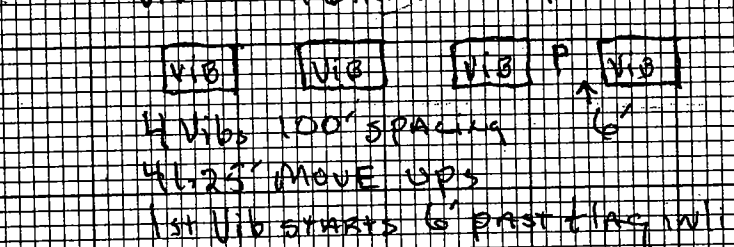 ViB ViB ViB P ViB
4 Vibs 100' SPACING 6'
41.25' MOVE UPS
1st Vib STARTS 6' PAST FLAG